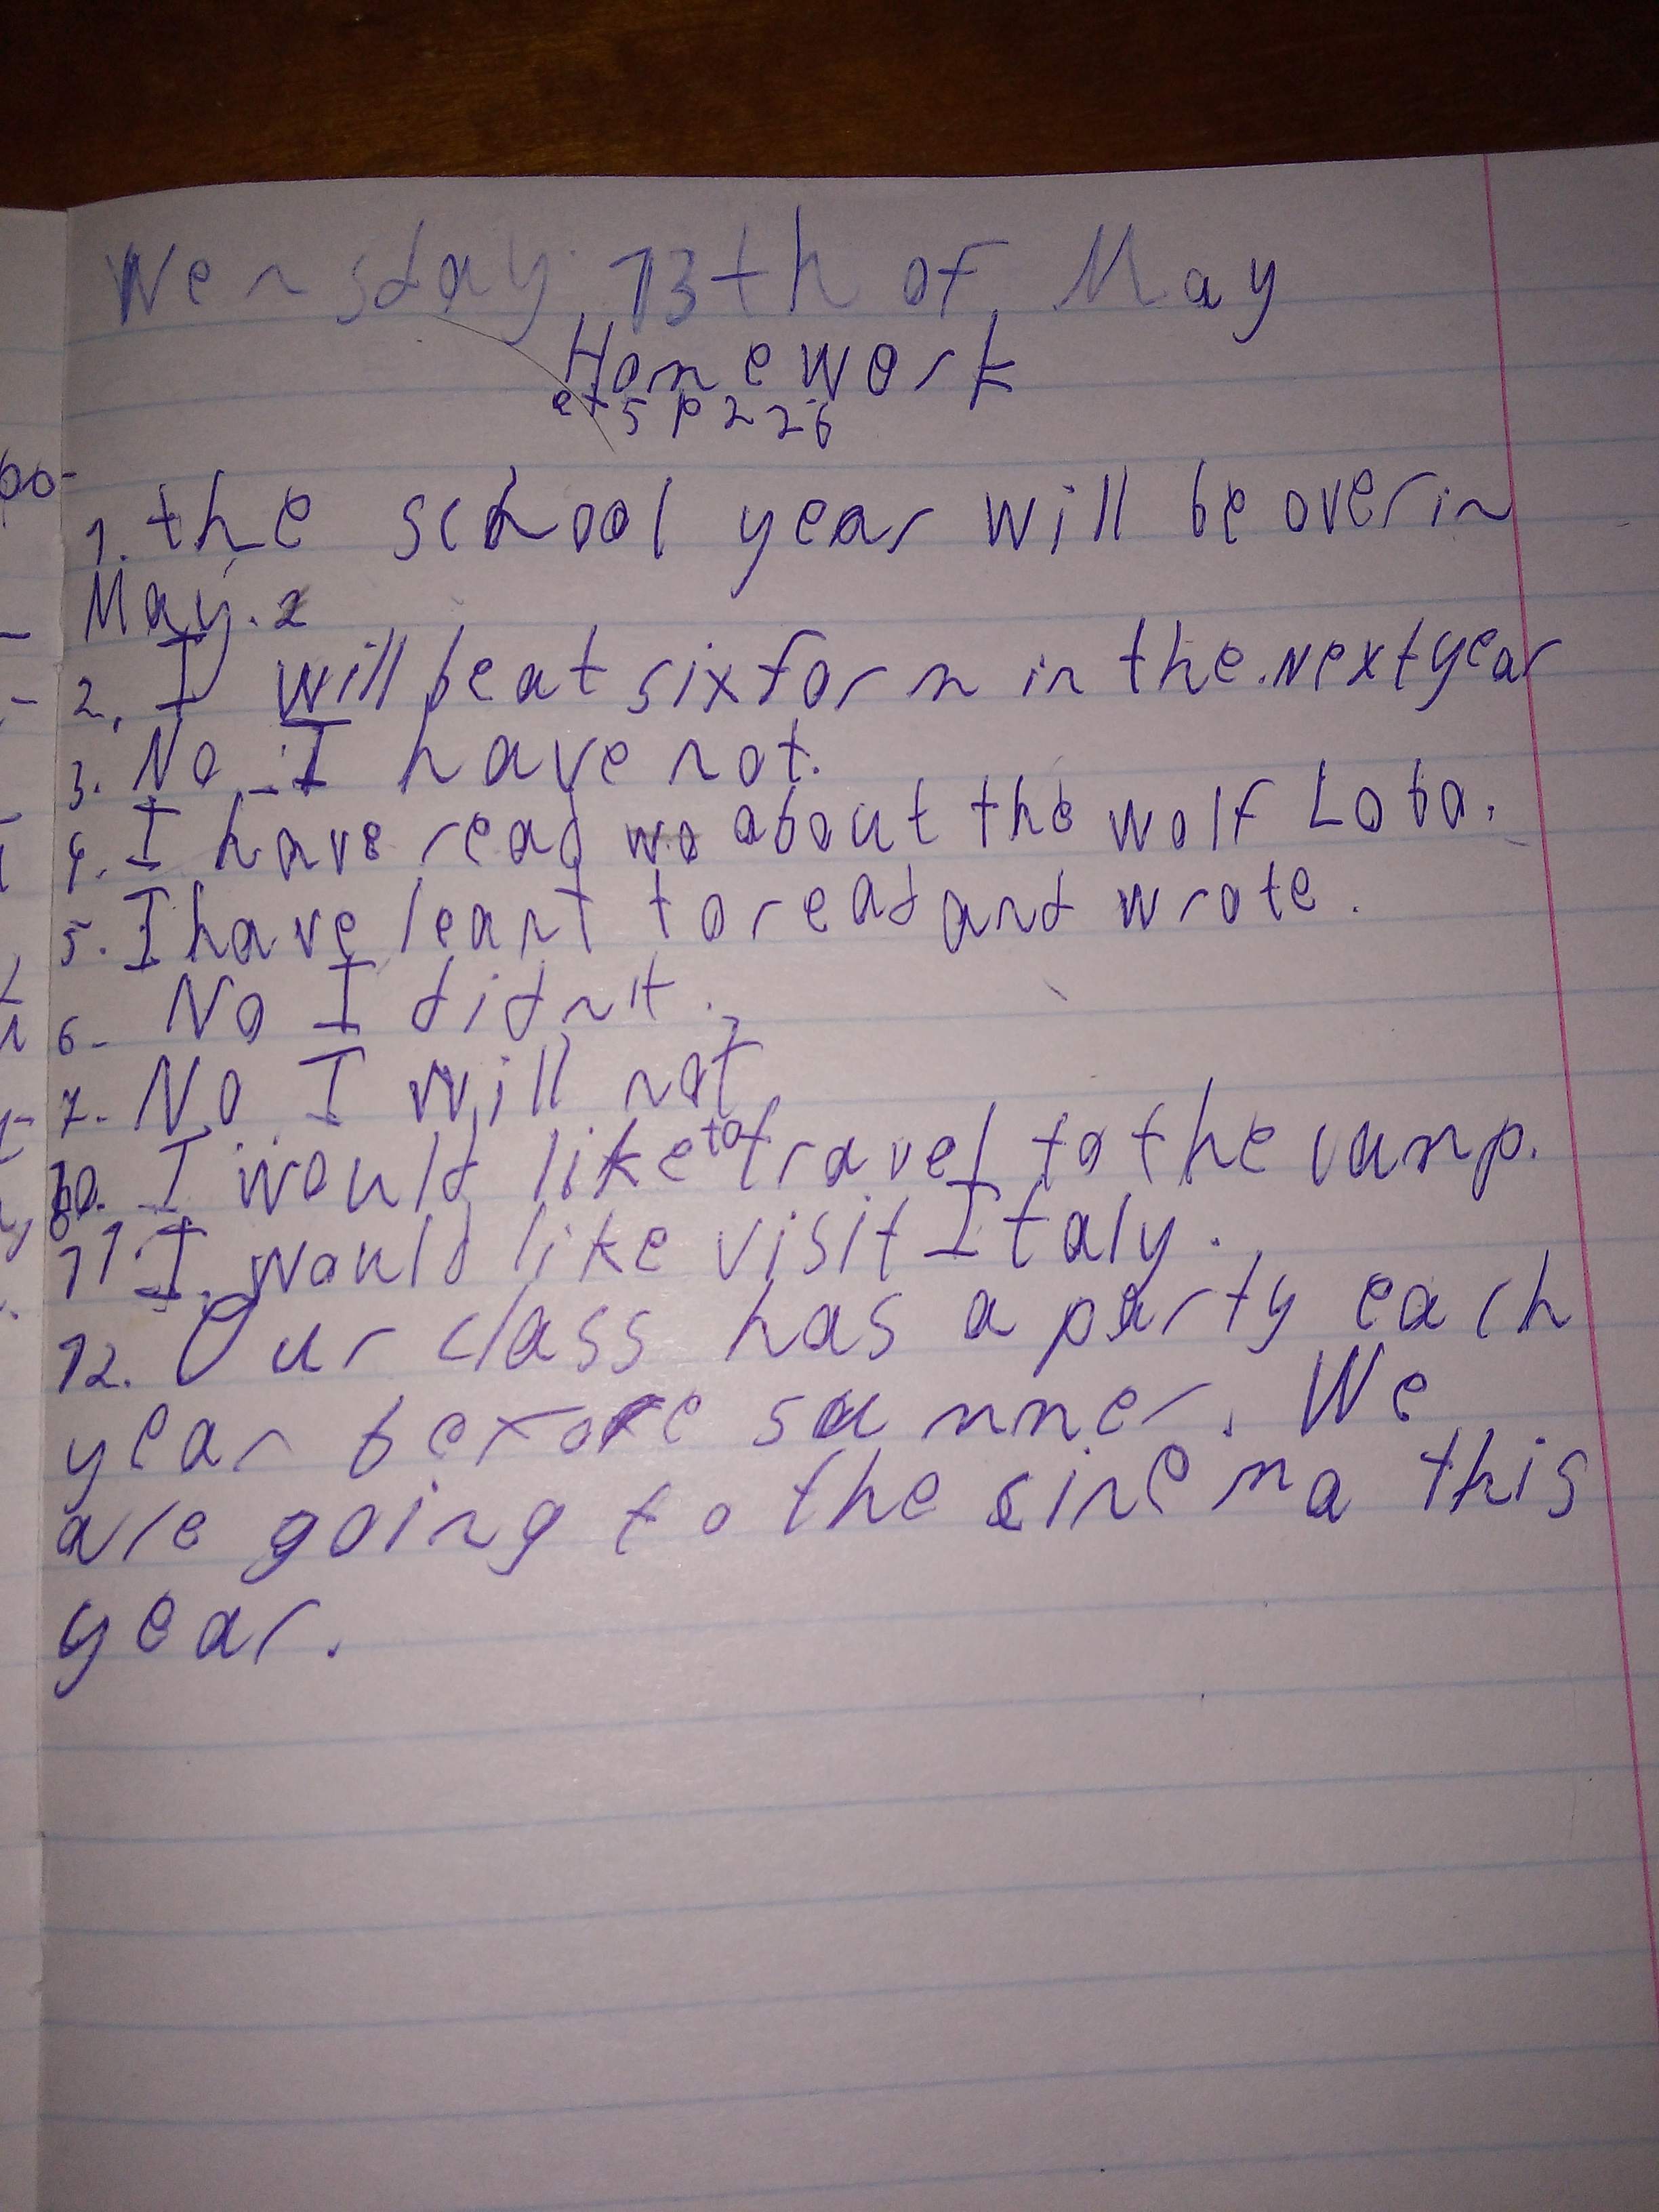 Wensday 13th of May
Homework
ex 5 p 226
1. the school year will be over in
May. 2
2. I will be at six form in the next year
3. No I have not.
4. I have read wo about the wolf Loba.
5. I have leant to read and wrote.
6. No I didn't.
7. No I will not
10. I would like to travel to the camp.
11 I would like visit Italy.
12. Our class has a party each
year before summer. We
are going to the cinema this
year.